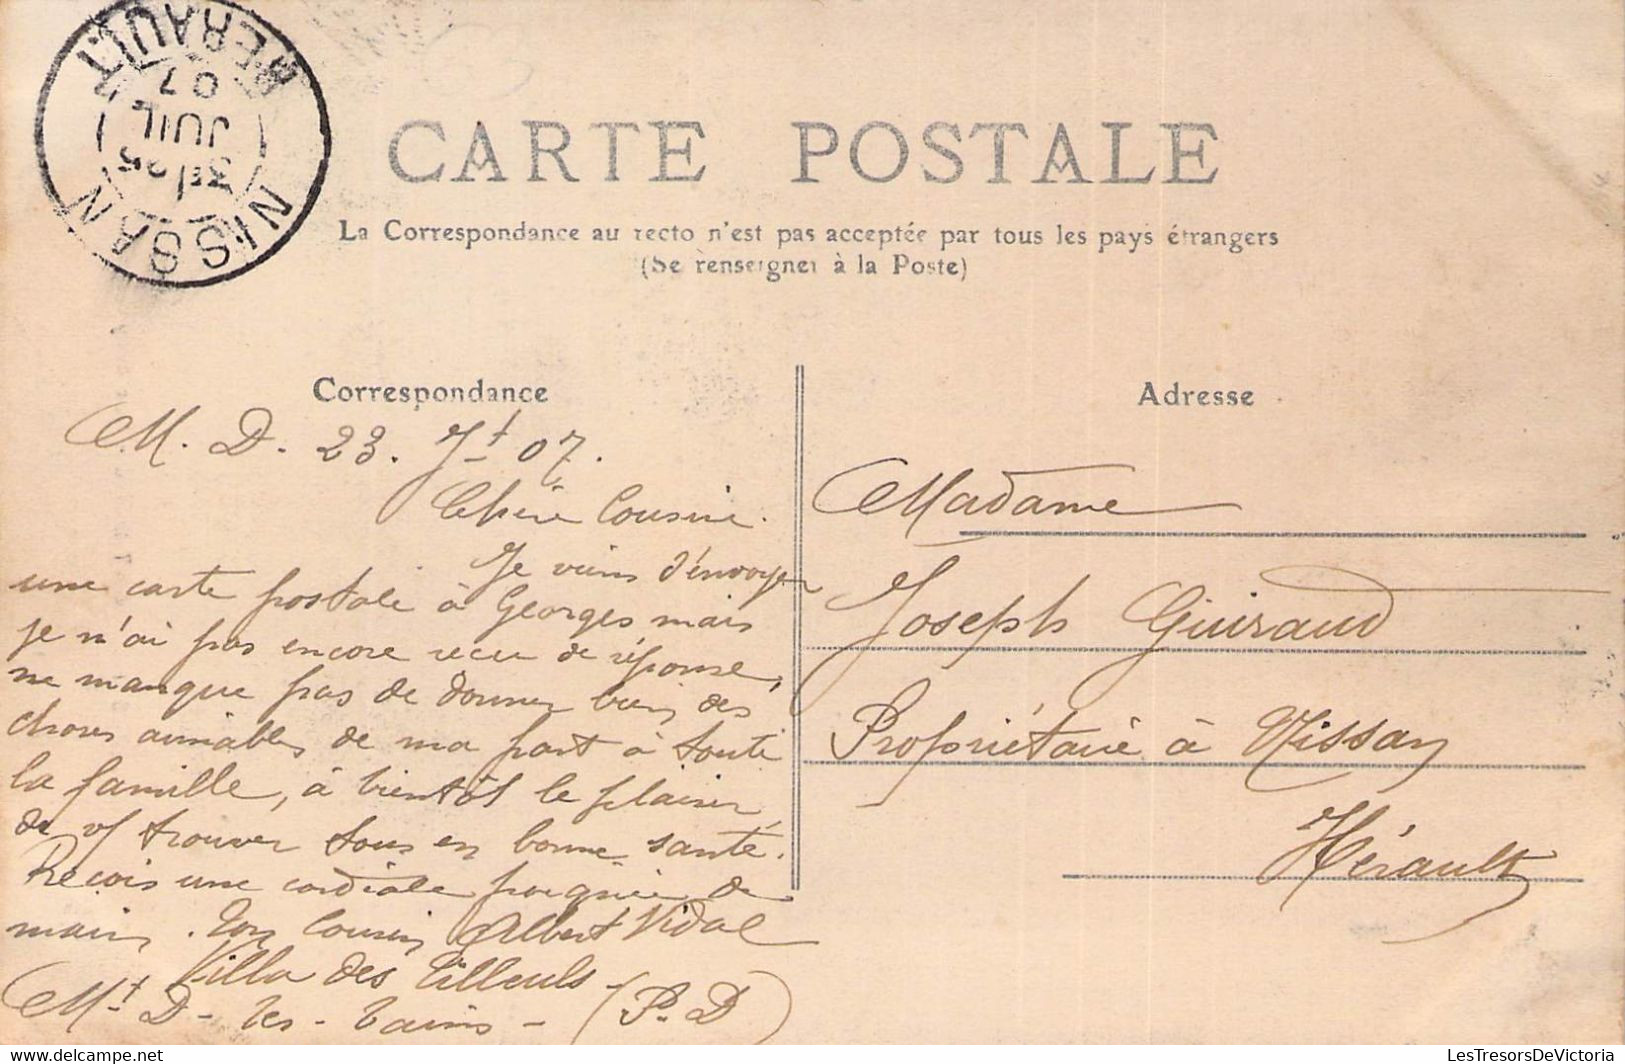 NISSAN
3E/25
JUIL
07
HERAULT
CARTE POSTALE
La Correspondance au recto n'est pas acceptée par tous les pays étrangers
(Se renseigner à la Poste)
Correspondance
M. D. 23. Jt 07.
Chère Cousine.
Je viens d'envoyer
une carte postale à Georges mais
je n'ai pas encore recu de réponse,
ne manque pas de donner bien des
choses aimables de ma part à toute
la famille, à bientôt le plaisir
de vs trouver tous en bonne santé.
Recois une cordiale poignée de
main. Ton Cousin Albert Vidal
Villa des Tilleuls -
Mt D - les - bains - (P. D)
Adresse
Madame
Joseph Guiraud
Propriétaire à Nissan
Hérault
LesTresorsDeVictoria
delcampe.net